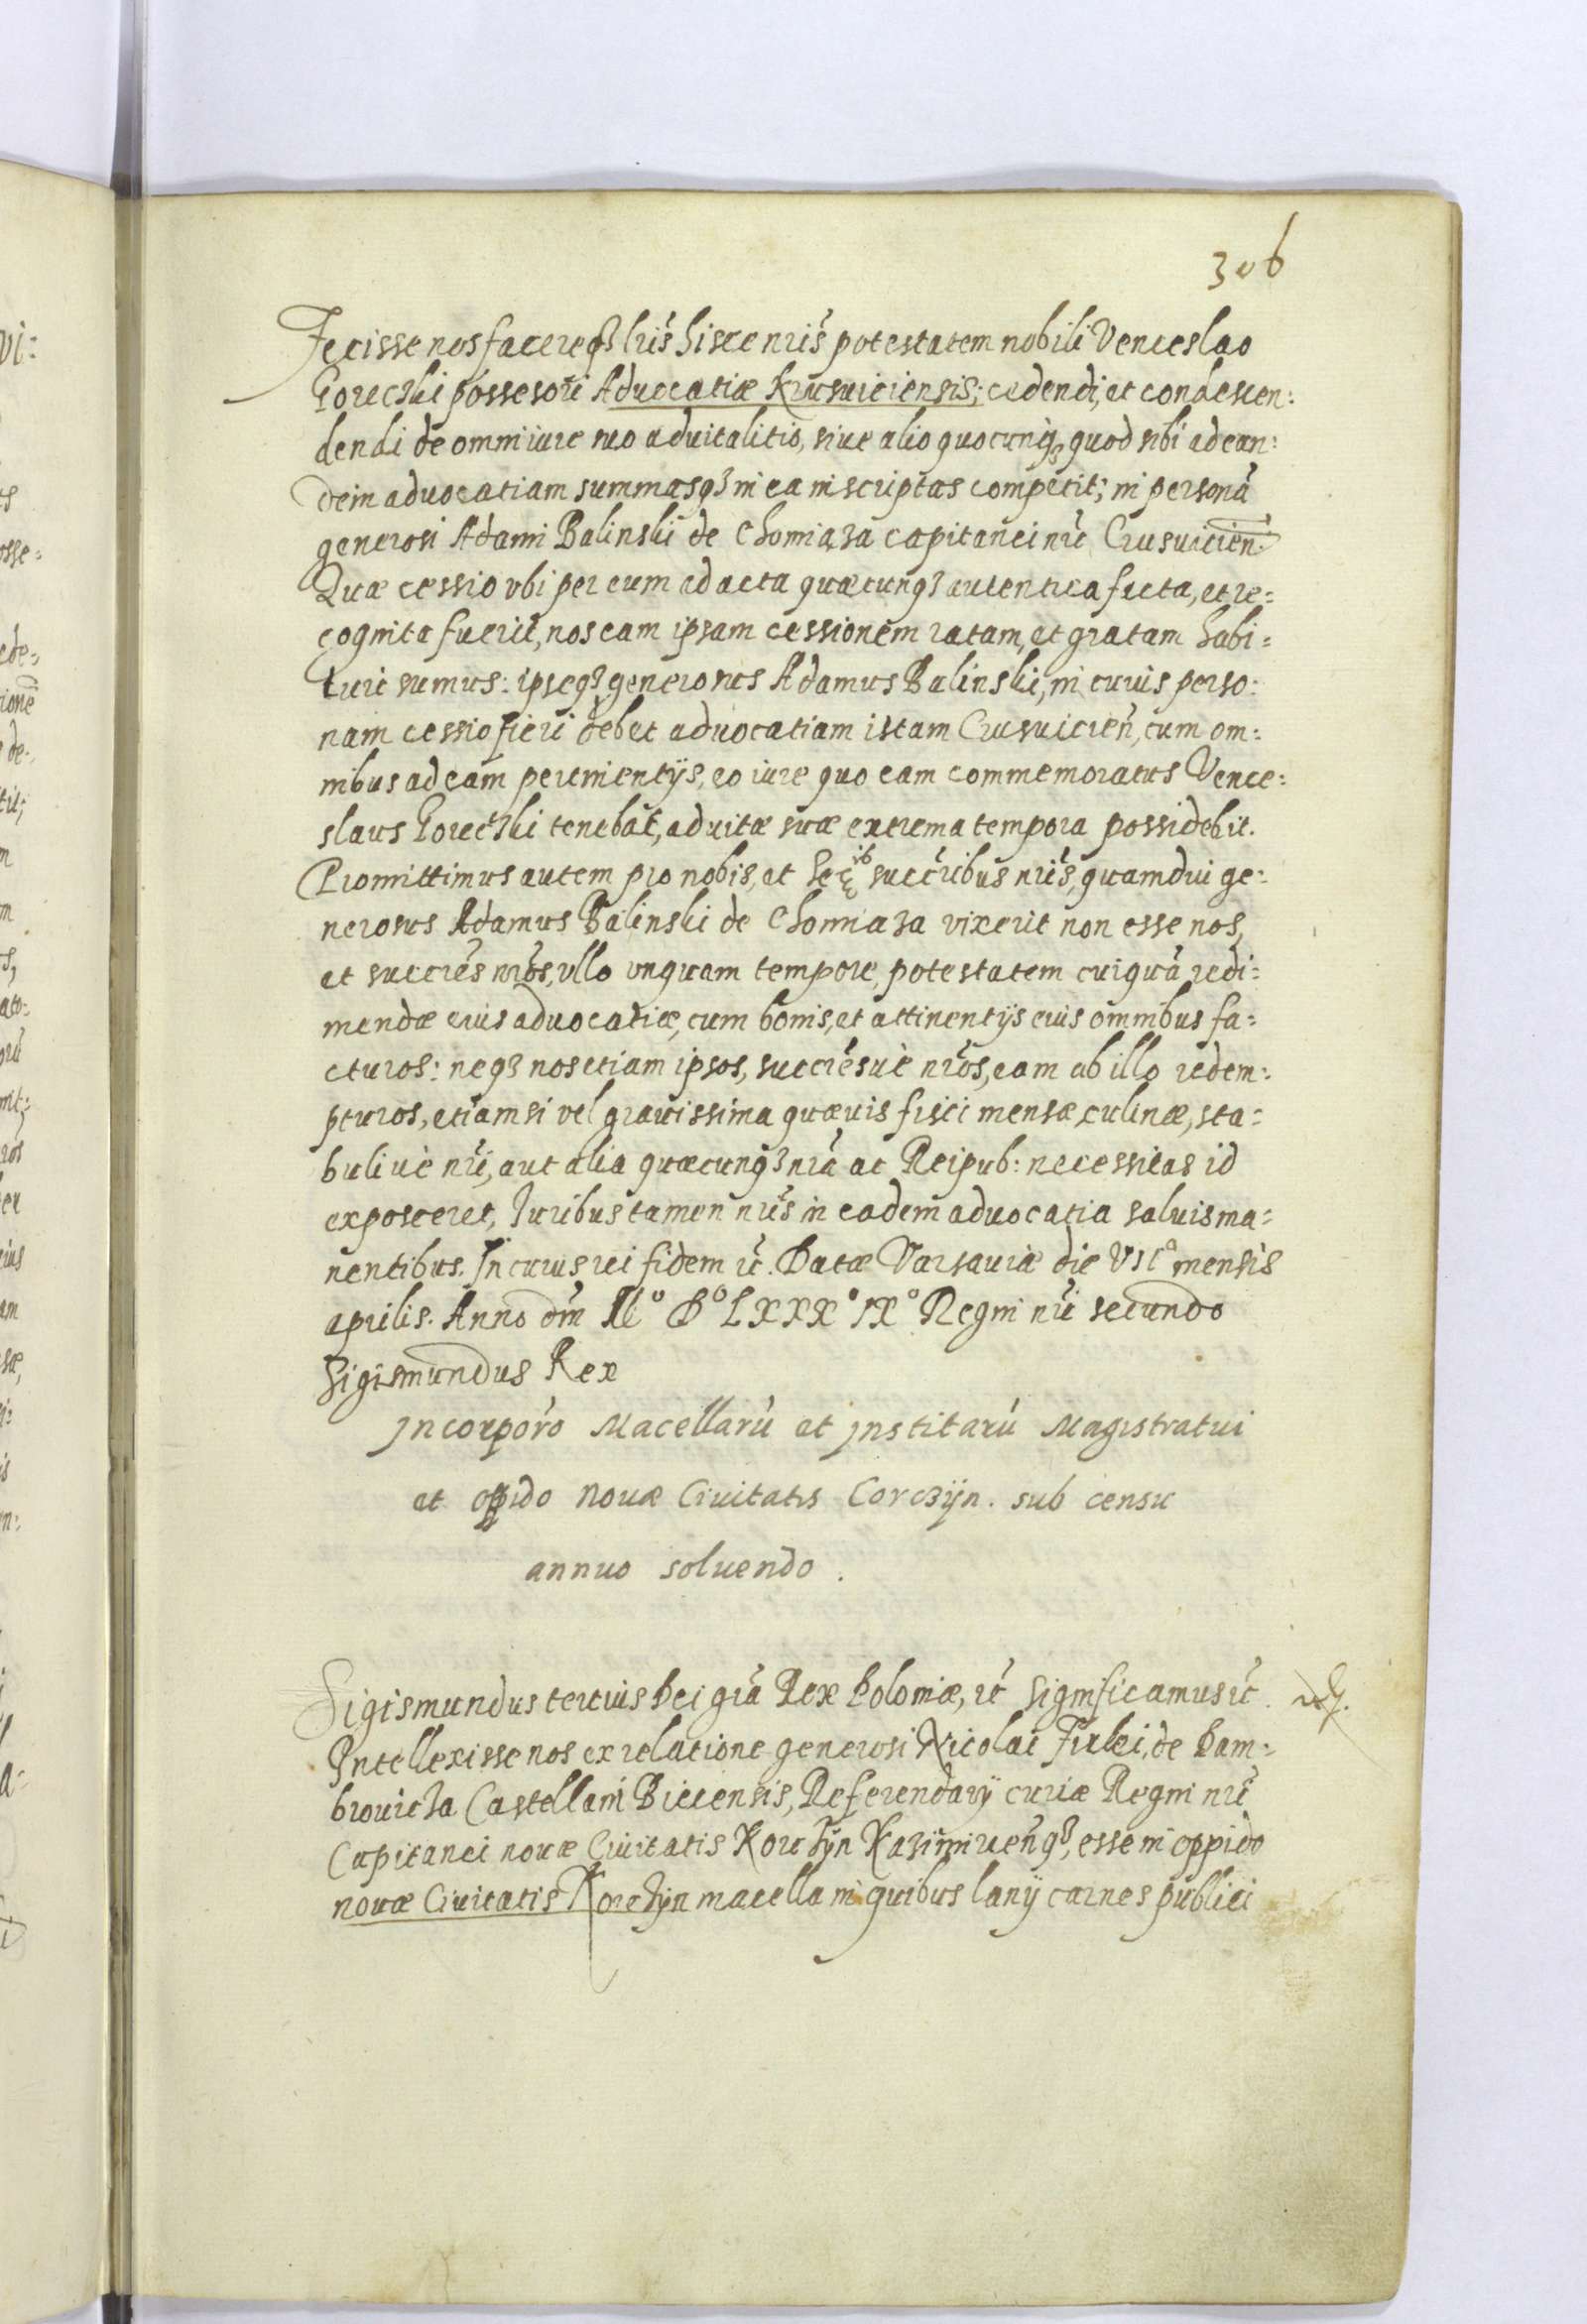 306
Fecisse nos facereq3 lrīs hisce nrīs potestatem nobili Venceslao
Goreczki possesori Aduocatiæ Krusuiciensis; cedendi, et condescen:
dendi de omni iure suo aduitalitio, siue alio quocunq3 quod sibi ad ean:
dem aduocatiam summasq3 in ea inscriptas competit; in personā
generosi Adami Balinski de Chomiąza capitanei nrī Crusuicień.
Quæ cessio vbi per eum ad acta quæcunq3 autentica facta, et re:
cognita fuerit, nos eam ipsam cessionem ratam, et gratam habi:
turi sumus: ipseq3 generosus Adamus Balinski, in cuius perso:
nam cessio fieri debet aduocatiam istam Crusuicień, cum om:
nibus ad eam pertinentijs, eo iure quo eam commemoratus Vence:
slaus Goreczki tenebat, ad uitæ suæ extrema tempora possidebit.
Promittimus autem pro nobis, et succr̄ibus nrīs, quamdiu ge:
nerosus Adamus Balinski de Chomiaza vixerit non esse nos,
et succrēs nrōs, vllo vnquam tempore, potestatem cuiquā redi:
mendæ eius aduocatiæ, cum bonis, et attinentijs eius omnibus fa:
cturos: neq3 nos etiam ipsos, succrēsuè nrōs, eam ab illo redem:
pturos, etiamsi vel grauissima quæuis fisci mensæ, culinæ, sta:
buliuè nrī, aut alia quæcunq3 nrā ac Reipub: necessitas id
exposceret, Iuribus tamen nrīs in eadem aduocatia saluis ma:
nentibus. In cuius rei fidem rc̄. Datæ Varsauiæ die VIIº mensis
aprilis. Anno dn̄i Mº Dº LXXXº IXº Regni nrī secundo
Sigismundus Rex
Incorporō Macellarū et Institarū Magistratui
et oppido Nouæ Ciuitatis Corczÿn. sub censu
annuo soluendo.
Sigismundus tertius Dei grā Rex Poloniæ, rc̄ significamus rc̄.
Intellexisse nos ex relatione generosi Nicolai Firlei, de Dam:
browicza Castellani Biecensis, Referendarÿ curiæ Regni nrī
Capitanei nouæ Ciuitatis Korczÿn Kazimirieńq3, esse in oppido
nouæ Ciuitatis Korczÿn macella in quibus lanÿ carnes publici